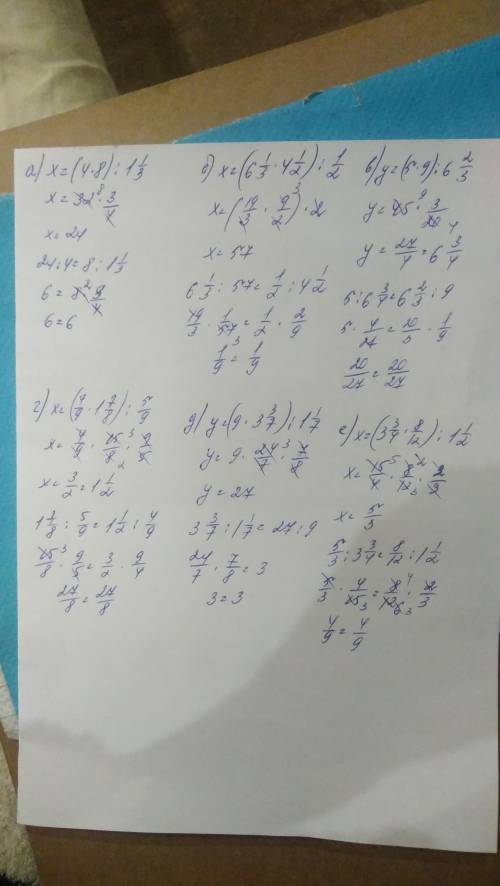 а) x=(4·8):1 1/3
x=32·3/4
x=24
24:4=8:1 1/3
6=8·3/4
6=6
б) x=(6 1/3·4 1/2):1/2
x=(19/3·9/2)·2
x=57
6 1/3:57=1/2:4 1/2
19/3·1/57=1/2·2/9
1/9=1/9
в) y=(5·9):6 2/3
y=45·3/20
y=27/4=6 3/4
5:6 3/4=6 2/3:9
5·4/27=20/3·1/9
20/27=20/27
г) x=(4/9·1 7/8):5/9
x=4/9·15/8·9/5
x=3/2=1 1/2
1 7/8:5/9=1 1/2:4/9
15/8·9/5=3/2·9/4
27/8=27/8
д) y=(9·3 3/7):1 1/7
y=9·24/7·7/8
y=27
3 3/7:1 1/7=27:9
24/7·7/8=3
3=3
е) x=(3 3/4·8/12):1 1/2
x=15/4·8/12·2/3
x=5/3
5/3:3 3/4=8/12:1 1/2
5/3·4/15=8/12·2/3
4/9=4/9